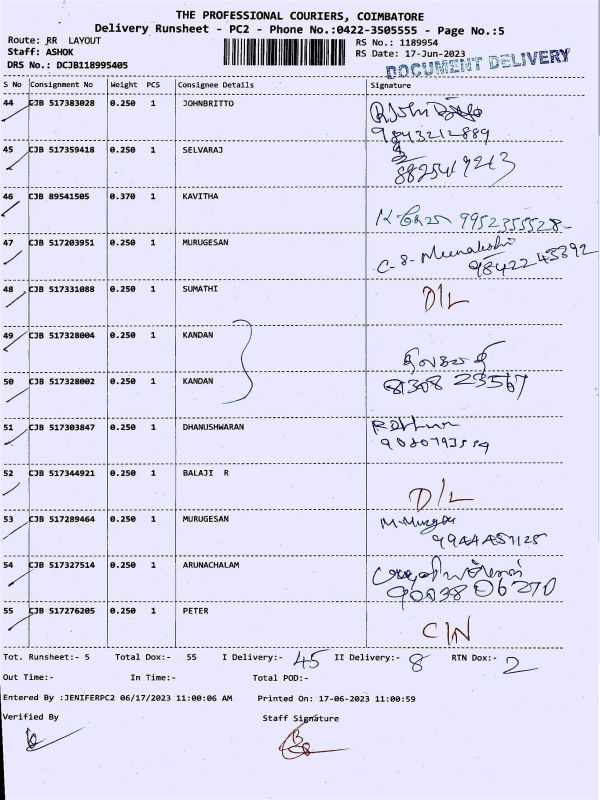 THE PROFESSIONAL COURIERS, COIMBATORE
Delivery Runsheet - PC2 - Phone No.:0422-3505555 - Page No.:5
Route: RR LAYOUT
RS No.: 1189954
Staff: ASHOK
RS Date: 17-Jun-2023
DRS No.: DCJB118995405
DOCUMENT DELIVERY
S No Consignment No Weight PCS Consignee Details Signature
44 CJB 517383028 0.250 1 JOHNBRITTO
9843212889
45 CJB 517359418 0.250 1 SELVARAJ
46 CJB 89541505 0.370 1 KAVITHA
9952355528
47 CJB 517203951 0.250 1 MURUGESAN
C. S. Meenakshi
9842245392
48 CJB 517331088 0.250 1 SUMATHI
D/L
49 CJB 517328004 0.250 1 KANDAN
50 CJB 517328002 0.250 1 KANDAN
81308 23567
51 CJB 517303847 0.250 1 DHANUSHWARAN
52 CJB 517344921 0.250 1 BALAJI R
D/L
53 CJB 517289464 0.250 1 MURUGESAN
54 CJB 517327514 0.250 1 ARUNACHALAM
90038 06270
55 CJB 517276205 0.250 1 PETER
C/N
Tot. Runsheet:- 5 Total Dox:- 55 I Delivery:- 45 II Delivery:- 8 RTN Dox:- 2
Out Time:- In Time:- Total POD:-
Entered By :JENIFERPC2 06/17/2023 11:00:06 AM Printed On: 17-06-2023 11:00:59
Verified By Staff Signature